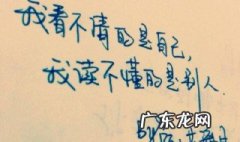 我看不清的是自己,
我读不懂的是别人.
广东龙网